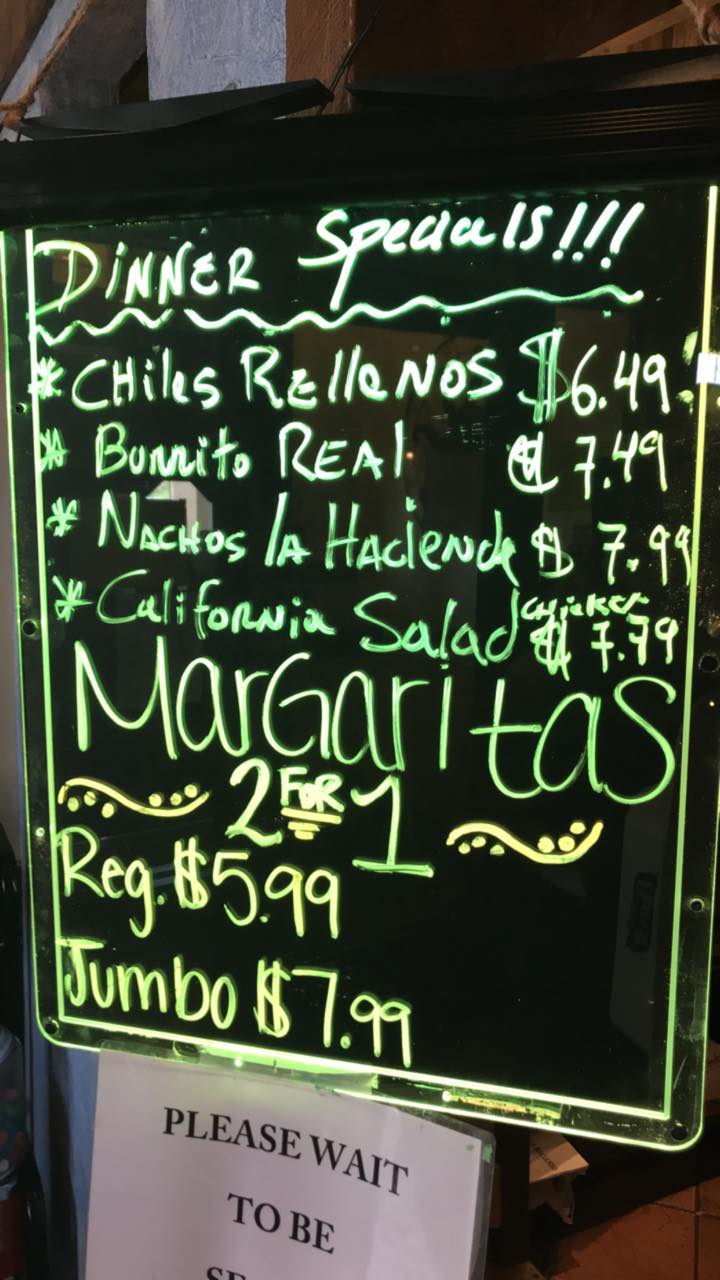 DINNER Specials!!!
* CHiles RElleNOS $6.49
* Burrito REAl $7.49
* NACHOS lA HAcienda $ 7.99
* CaliforNia Salad chicken $ 7.79
MarGaritas
2 FOR 1
Reg. $5.99
Jumbo $7.99
PLEASE WAIT
TO BE